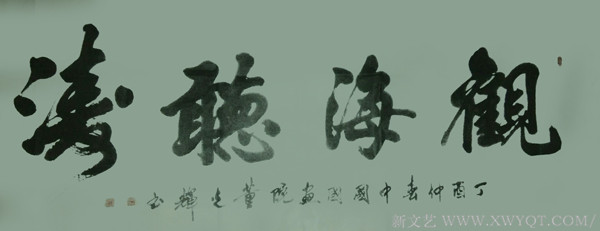 觀海聽濤
丁酉仲春中國國畫院董光輝書
新文艺 WWW.XWYQT.COM